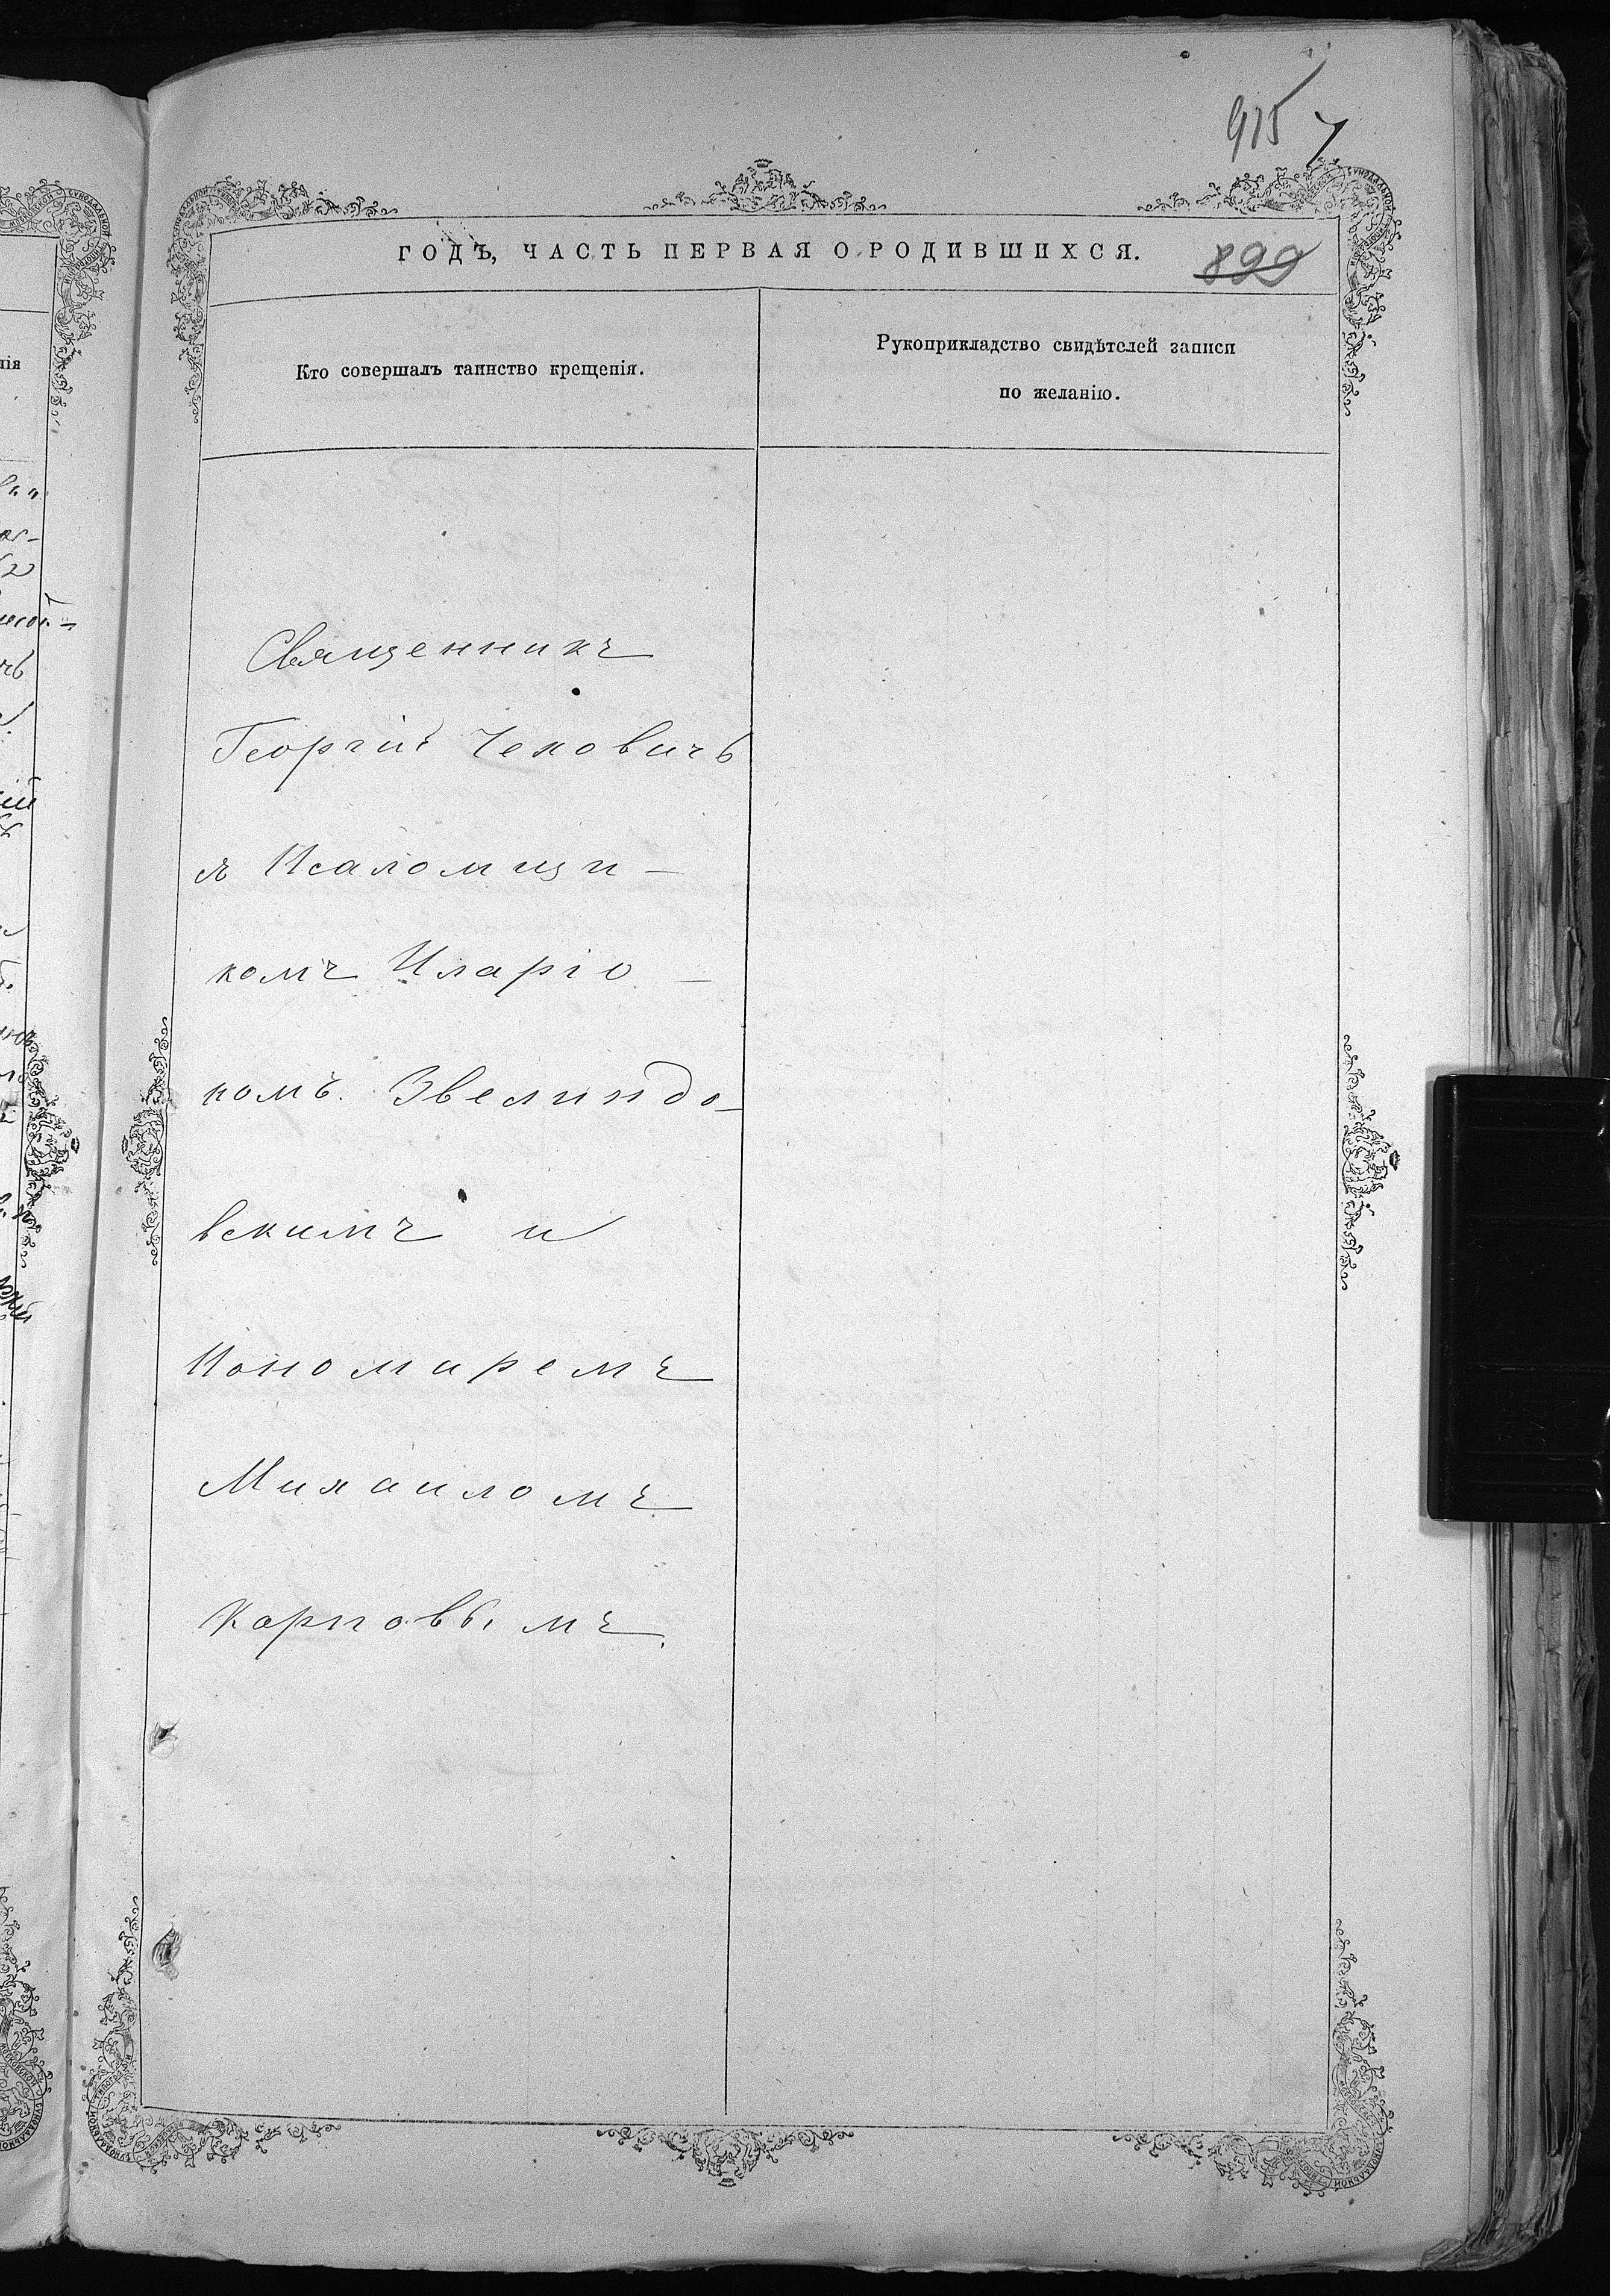 915
ГОДЪ, ЧАСТЬ ПЕРВАЯ О РОДИВШИХСЯ.
899
Кто совершалъ таинство крещенія.
Рукоприкладство свидѣтелей записи
по желанію.
Священникъ
Георгій Чеховичъ
съ Псаломщи-
комъ Иларіо-
номъ Звелиндо-
вскимъ и
Пономаремъ
Михаиломъ
Карповымъ.